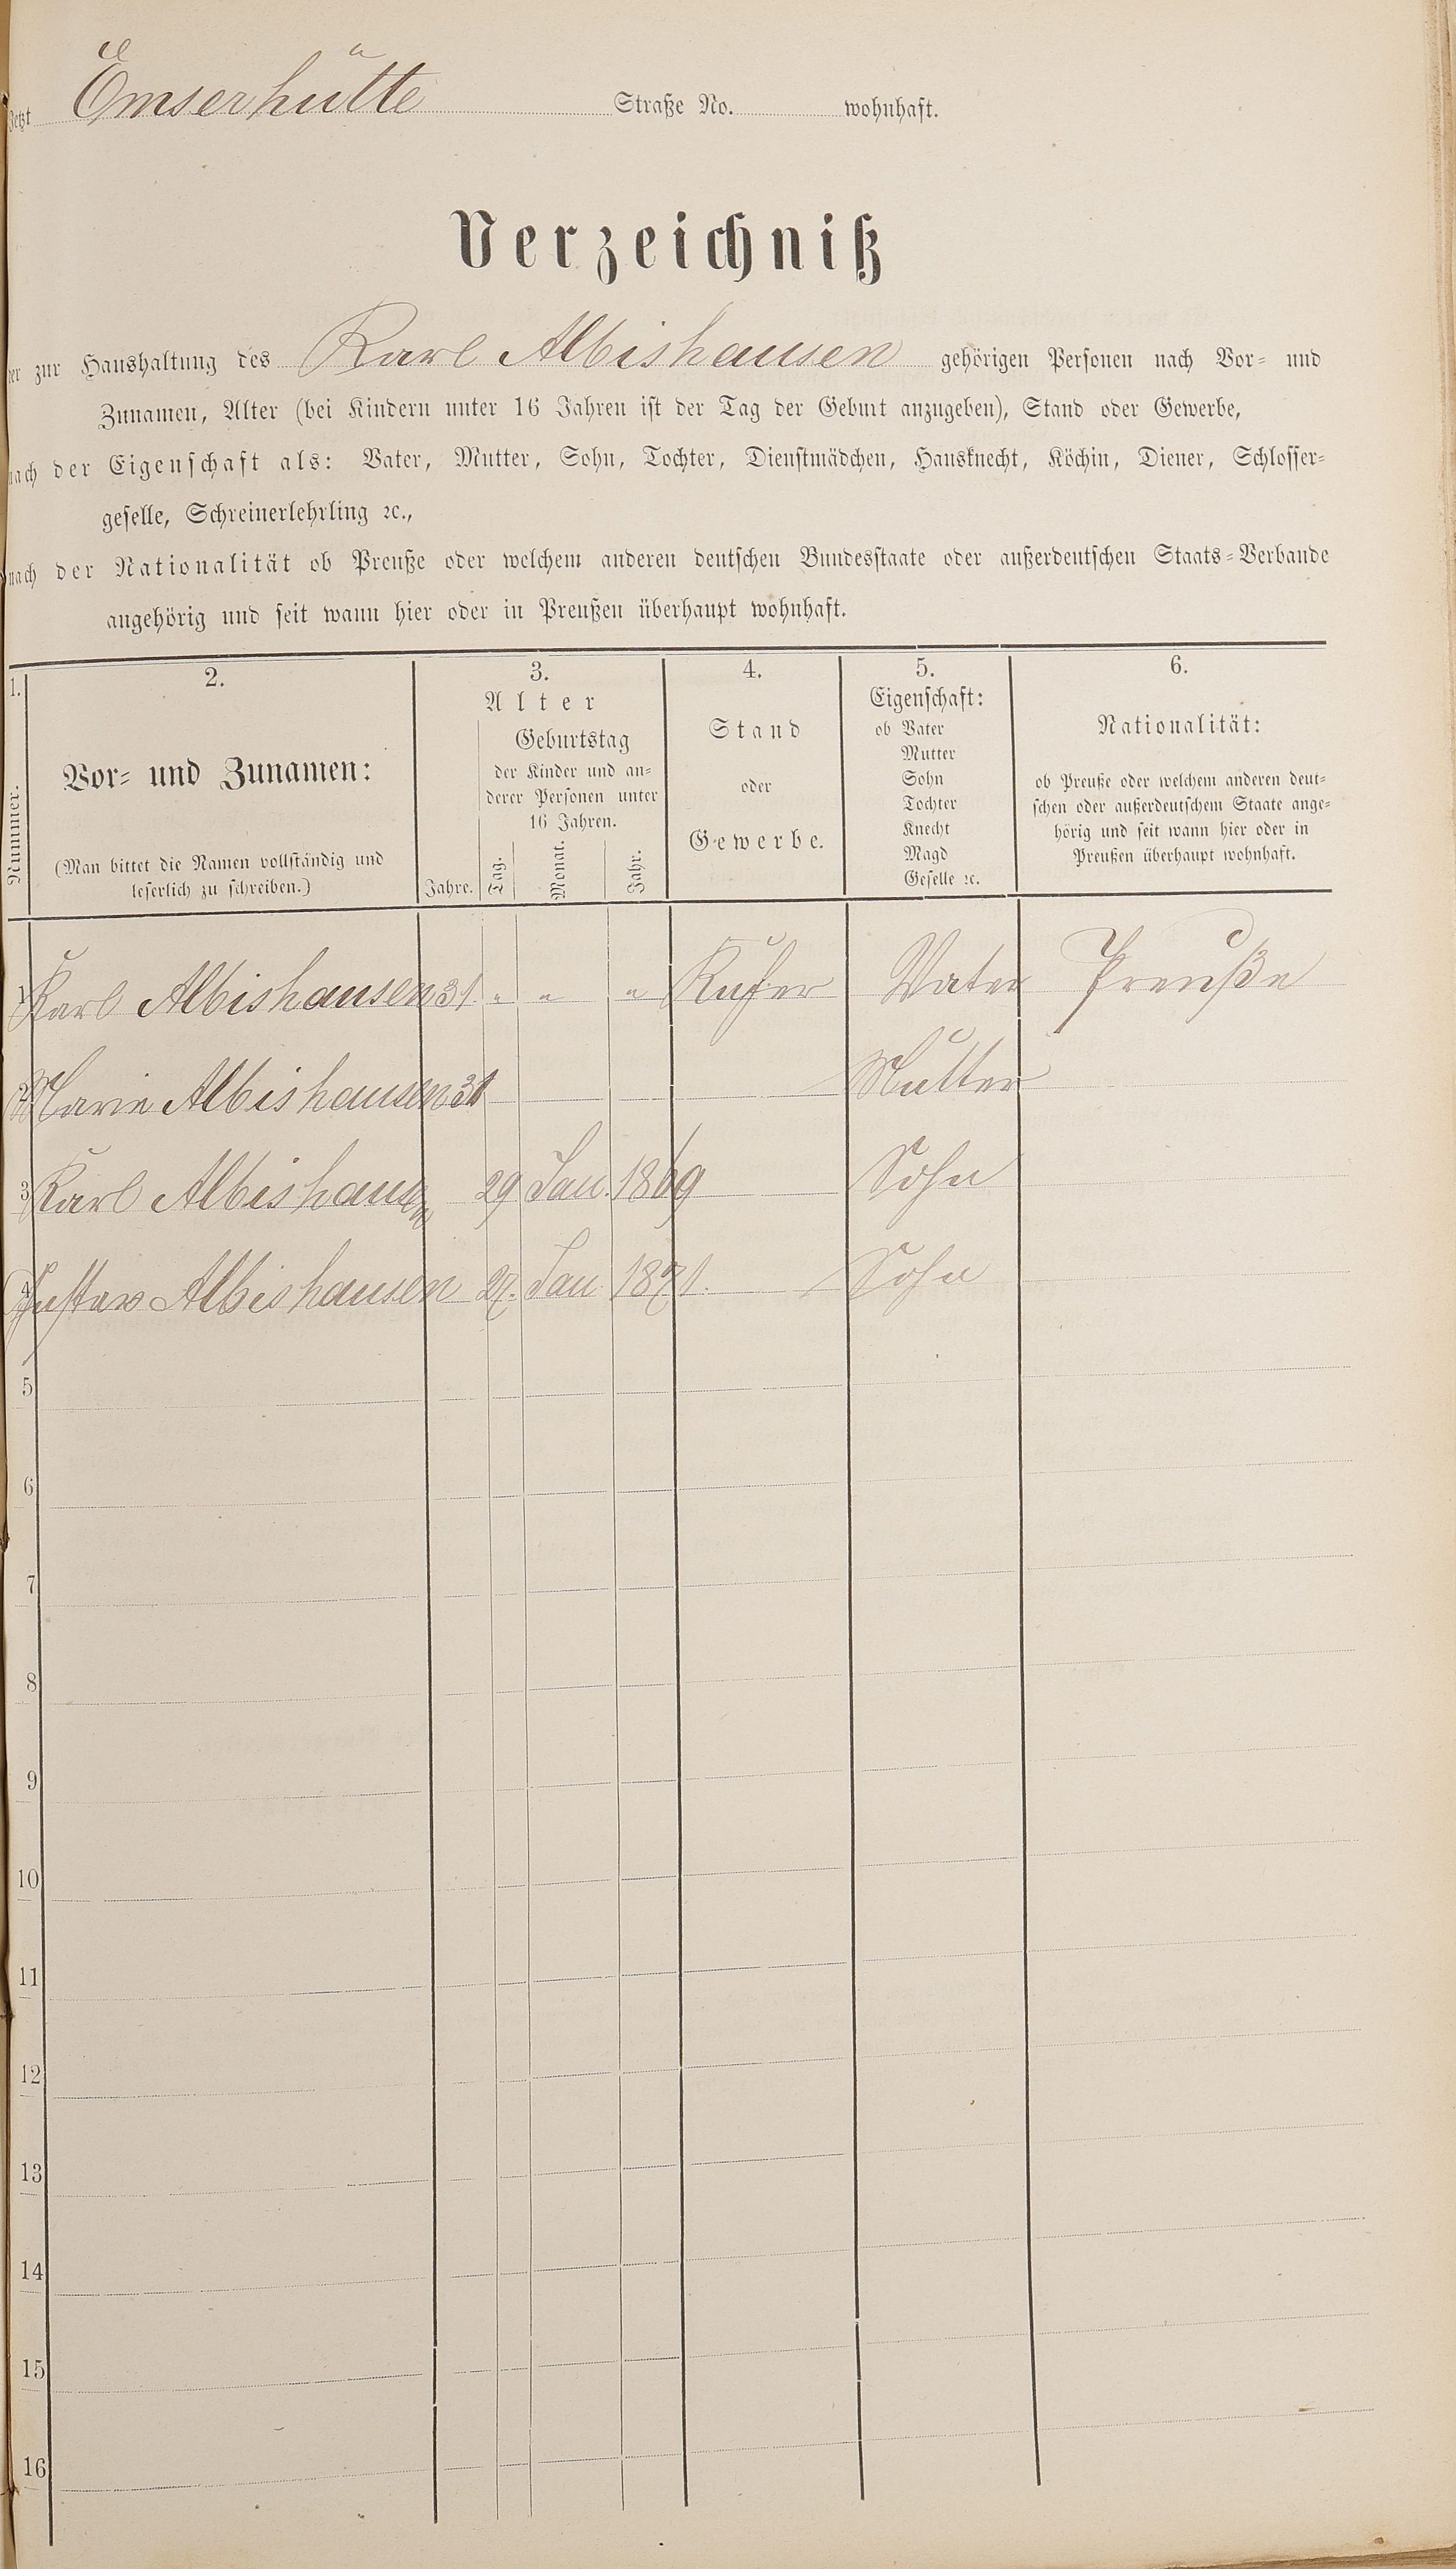 Jetzt Emserhütte Straße No. wohnhaft.
Verzeichniß
der zur Haushaltung des Karl Albishausen gehörigen Personen nach Vor- und
Zunamen, Alter (bei Kindern unter 16 Jahren ist der Tag der Geburt anzugeben), Stand oder Gewerbe,
nach der Eigenschaft als: Vater, Mutter, Sohn, Tochter, Dienstmädchen, Hausknecht, Köchin, Diener, Schlosser-
geselle, Schreinerlehrling ꝛc.,
nach der Nationalität ob Preuße oder welchem anderen deutschen Bundesstaate oder außerdeutschen Staats-Verbande
angehörig und seit wann hier oder in Preußen überhaupt wohnhaft.
1.
Nummer.
2.
Vor- und Zunamen:
(Man bittet die Namen vollständig und
leserlich zu schreiben.)
3.
Alter
Geburtstag
der Kinder und an-
derer Personen unter
16 Jahren.
Jahre. Tag. Monat. Jahr.
4.
Stand
oder
Gewerbe.
5.
Eigenschaft:
ob Vater
Mutter
Sohn
Tochter
Knecht
Magd
Geselle ꝛc.
6.
Nationalität:
ob Preuße oder welchem anderen deut-
schen oder außerdeutschem Staate ange-
hörig und seit wann hier oder in
Preußen überhaupt wohnhaft.
1 Karl Albishausen 31 " " " Kufer Vater Preuße
2 Marie Albishausen 31 Mutter
3 Karl Albishausen 29 Jan. 1869 Sohn
4 Gustav Albishausen 27. Jan 1871. Sohn
5
6
7
8
9
10
11
12
13
14
15
16